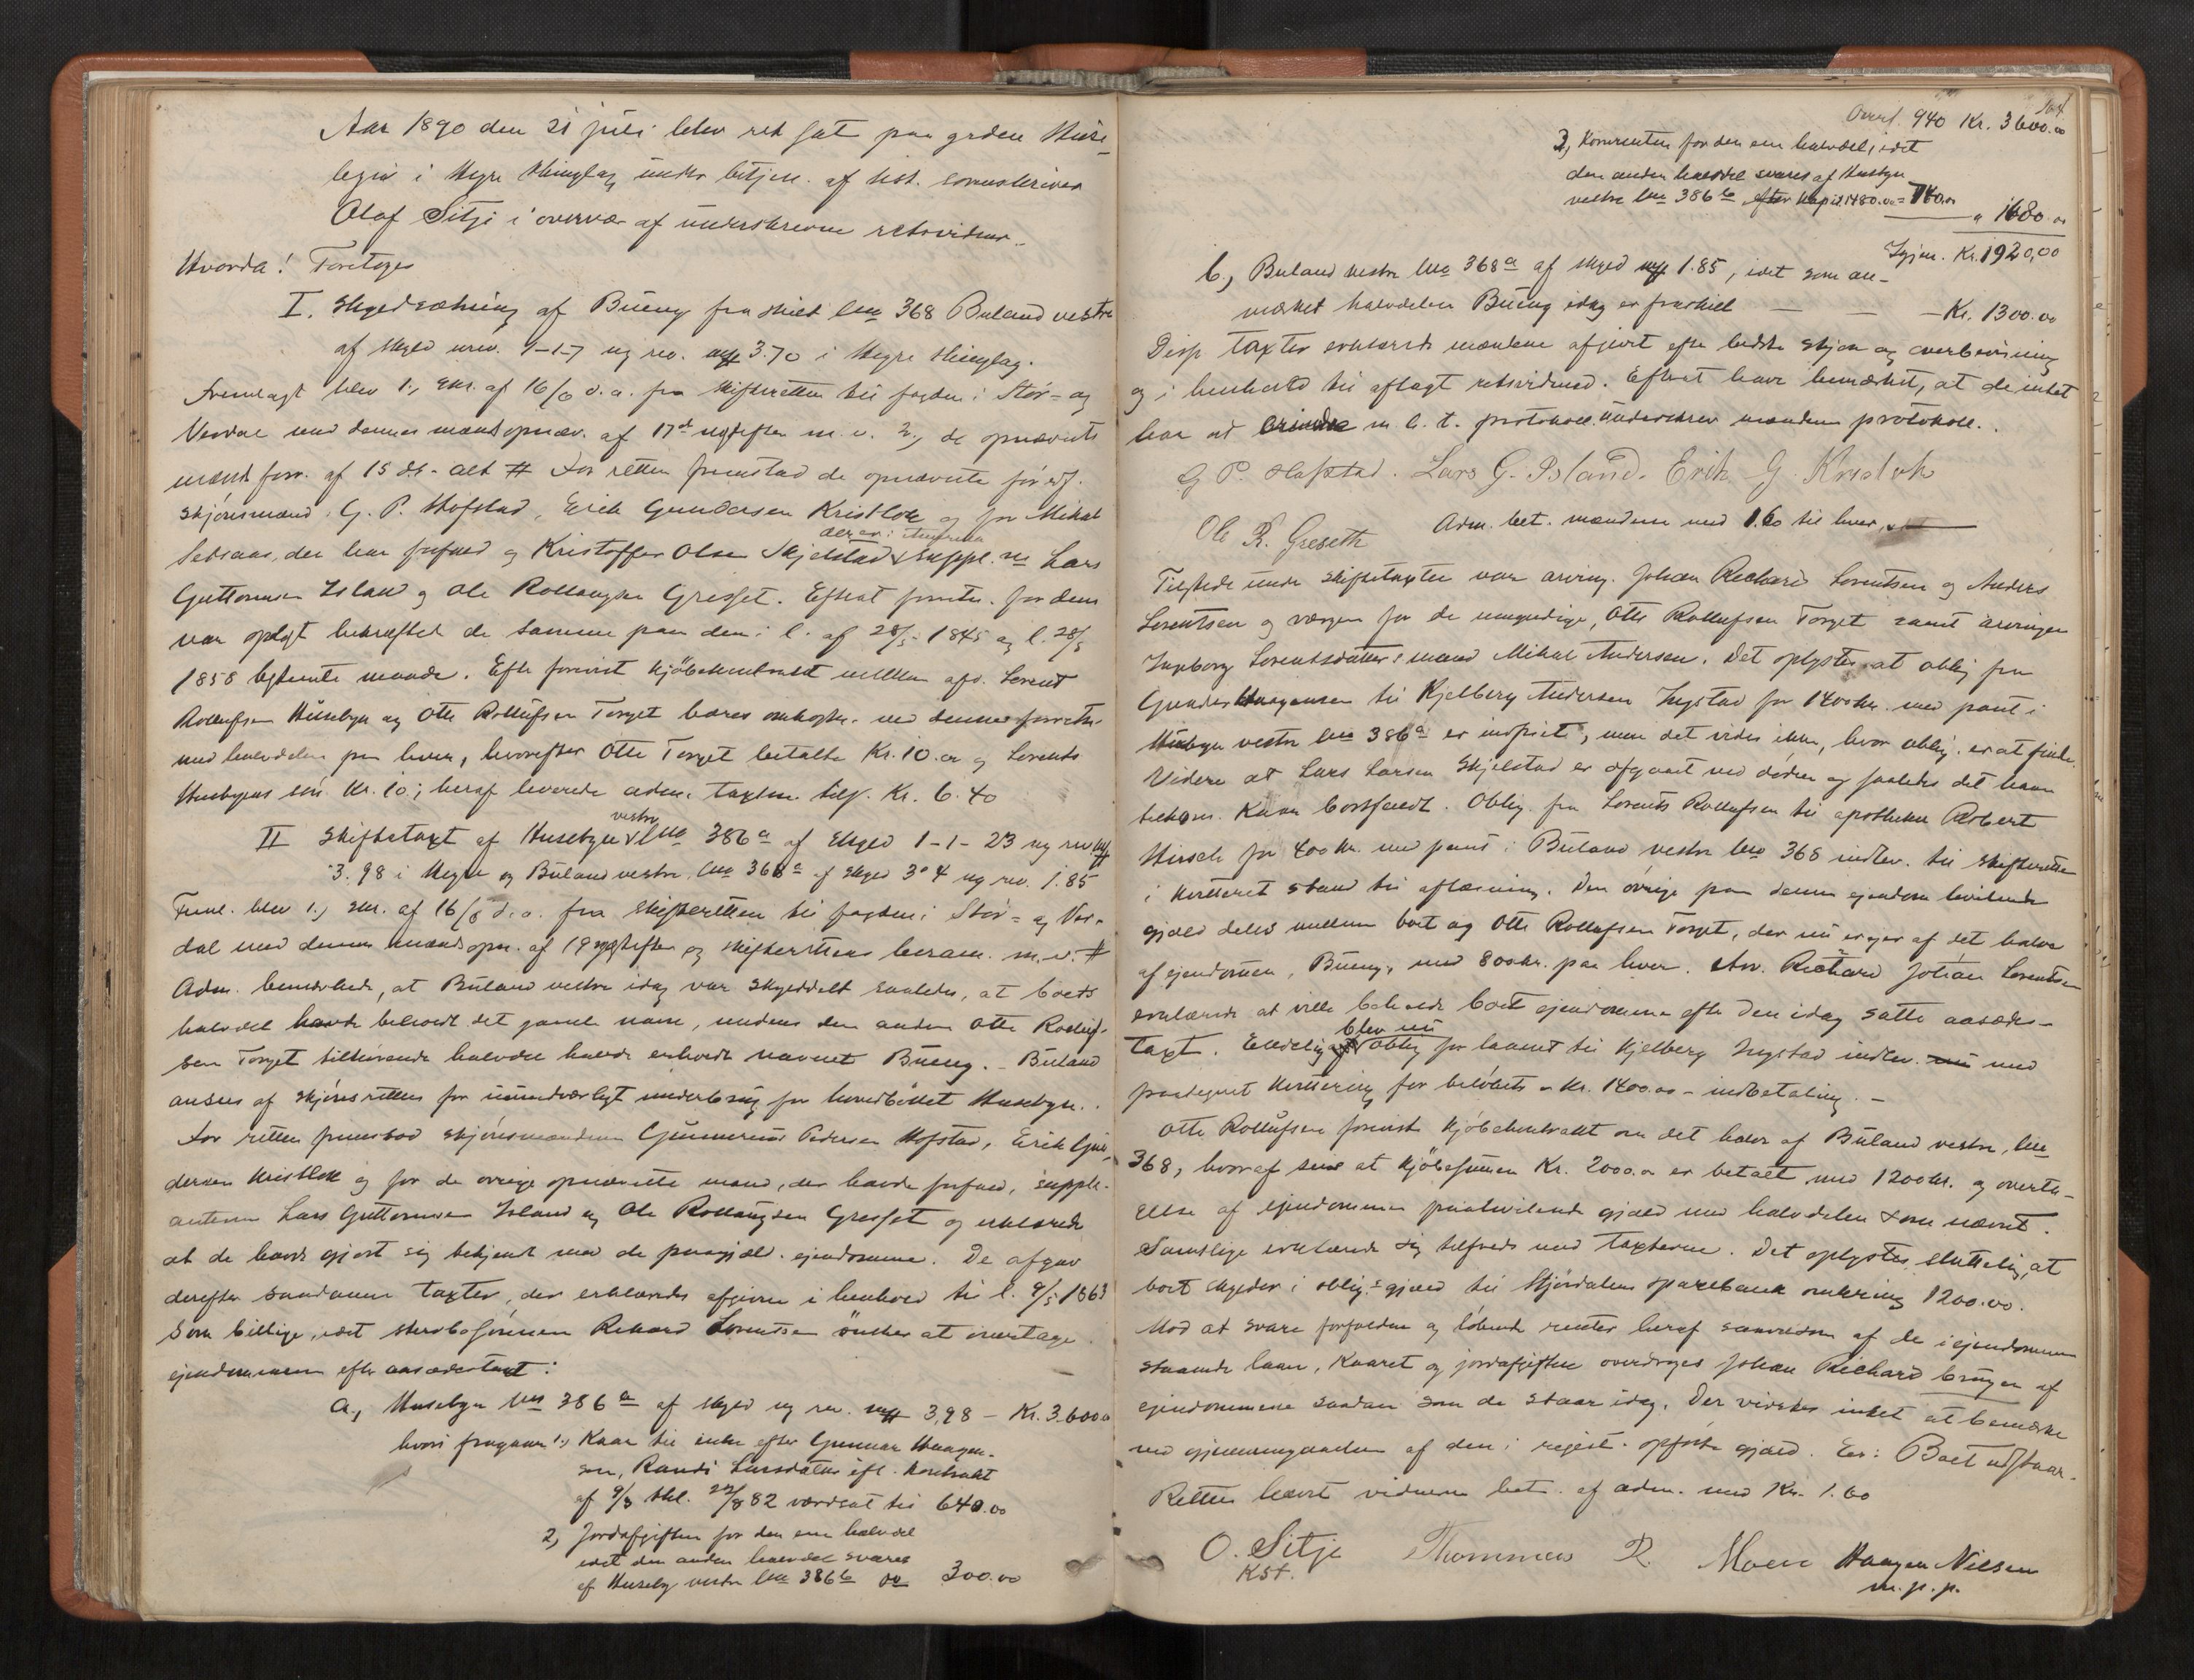 Aar 1890 den 21 juli blev ret sat paa gaden Huse-
byen i Hegre thinglag under betjen. af kst. sorenskriver
Olaf Sitje i overvær af underskrevne retsvidner.
Hvorda! Foretoges
I. Skyldsætning af Bueng fra skilt lno 368 Buland vestre
af skyld urev. 1-1-7 ny rev. 3.70 i Hegre thinglag.
Fremlagt blev 1, skr. af 16/6 d.a. fra skifteretten til fogden i Stør- og
Verdal med dennes mandsopnæv. af 17de m.v. 2, de opnævnte
mænds forv. af 15 ds. - alt # For retten fremstod de opnævnte
skjønsmænd: G. P. Hofstad, Erik Gundersen Kristlok og for Mikal
der har forfald og Kristoffer Olsen Skjelstad suppl. ne Lars
Guttormsen Island og Ole Rollaugsen Gresset. Efterat forretn. for dem
var oplyst bekræftet de samme paa den i l. af 28/5 1845 og l. 28/5
1858 bestemte maade. Efter forevist kjøbekontrakt mellem afd. Lorents
Rollufsen Husebyn og Otte Rollufsen Torget bæres omkostn. ved denne forretn.
med halvdelen paa hver, hvorefter Otte Torget betalte Kr. 10.00 og Lorents
Husbyens søn Kr. 10; heraf leverede adm. Kr. 6.40
II Skiftetaxt af Husebyn vestre lno 386a af skyld 1-1-23 ny rev.
3.98 i Hegre og Buland vestre lno 368a af skyld 3 ort 4 ny rev. 1.85
Freml. blev 1, skr. af 16/6 d.a. fra skifteretten til fogden i Stør- og Ver-
dal med dennes mandsopn. af 19 og skifterettens beram. m.v. #
Adm. bemærkede, at Buland vestre idag var skylddelt saaledes, at boets
halvdel havde beholdt det gamle navn, medens den anden Otte Rolluf-
sen Torget tilhørende halvdel havde erholdt navnet Bueng. - Buland
ansees af skjønsretten for uundværligt underbrug for hovedbøllet Husebyn.
For retten fremstod skjønsmændene Gunnerius Pedersen Hofstad, Erik Gun-
dersen Kristlok og for de øvrige opnævnte mænd, der havde forfald, supple-
anterne Lars Guttormsen Island og Ole Rollaugsen Gresset og erklærede
at de havde gjort sig bekjendt med de paagjæld. ejendomme. De afgav
derefter saadanne taxter, der erklæredes afgivne i henhold til l. 9/5 1863
som billige, idet sterbosønnen Rikard Lorentsen ønsker at overtage
ejendommen efter aasædestaxt:
a, Husebyn lno 386a af skyld ny rev. 3,98 - Kr. 3.600.00
hvori fragaar: 1, Kaar til enke efter Gunnar Haagen-
sen, Randi Larsdatter efl. kontrakt
af 9/3 thl. 22/8 82 værdsat til 640.00
2, Jordafgiften for den ene halvdel
idet den anden halvdel svares
af Huseby vestre lno 386b 300.00
Overf. 940 Kr. 3600.00
3, Kornrenten for den ene halvdel, idet
den anden halvdel svares af Husbyn
vestre lno 386b, efter Kapit. 1480.00 = 740.00
" 1680.00
Igjen. Kr. 1920,00
b, Buland vestre lno 368a af skyld 1.85, idet som an-
mærket halvdelen Bueng idag er fraskilt — — Kr. 1300.00
Disse taxter erklærede mændene afgivet efter bedste skjøn og overbevisning
og i henhold til aflagt retsvidned. Efterat have bemærket, at de intet
har at erindre m. h. t. protokoll. underskrev mændene protokoll.
G P. Hofstad. Lars G. Island. Erik G. Kristlok
Ole R. Greseth Adm. bet. mændene med 1.60 til hver.
Tilstede under skiftetaxten var arving. Johan Richard Lorentsen og Anders
Lorentsen og værgen for de umyndige, Otte Rollufsen Torget samt arvingen
Ingeborg Lorentsdatters mand Mikal Andersen. Det oplystes at oblig fra
Gunder Haagensen til Kjelberg Andersen Ingstad for 1400 kr. med pant i
Husbyn vestre lno 386a er indfriet, men det vides ikke, hvor oblig. er at finde.
Videre at Lars Larsen Skjelstad er afgaaet ved døden og saaledes det ham
tilkom. Kaar bortfaldt. Oblig. fra Lorents Rollufsen til apotheker Robert
Hirsch for 400 kr. med pant i Buland vestre lno 368 indlev. til skifteretten
i kvitteret stand til aflæsning. Den øvrige paa denne ejendom hvilende
gjæld deles mellem boet og Otte Rollufsen Torget, der nu er ejer af det halve
af ejendomen, Bueng, med 800 kr. paa hver. Arv. Richard Johan Lorentsen
erklærede at ville beholde boet ejendomme efter den idag satte aasædes-
taxt. Endelig blev nu oblig for laanet til Kjelberg Ingstad indlev. med
paategnet kvittering for beløbets - Kr. 1400.00 - indbetaling. -
Otte Rollufsen foreviste kjøbekontrakt om det halve af Buland vestre, lno
368, hvoraf sees at kjøbesummen Kr. 2000.00 er betalt med 1200 kr. og overta-
gelse af ejendommen paahvilende gjæld med halvdelen som nævnt.
Samtlige erklærede sig tilfreds med taxterne. Det oplystes sluttelig, at
boet skylder i oblig.-gjæld til Stjørdalens sparebank omkring 1200.00.
Mod at svare forfaldne og løbende renter heraf samt renten af de i ejendommen
staaende laan, Kaaret og jordafgiften overdrages Johan Richard brugen af
ejendommene saadan som de staar idag. Der vidstes intet at bemærke
ved gjennemgaaelsen af den i regist. opførte gjæld. Er: Boet udstaar.
Retten hævet vidnerne bet. af adm. med Kr. 1.60
O. Sitje
Kst.
Thommas R. Moen
Haagen Nielsen
m.p.p.